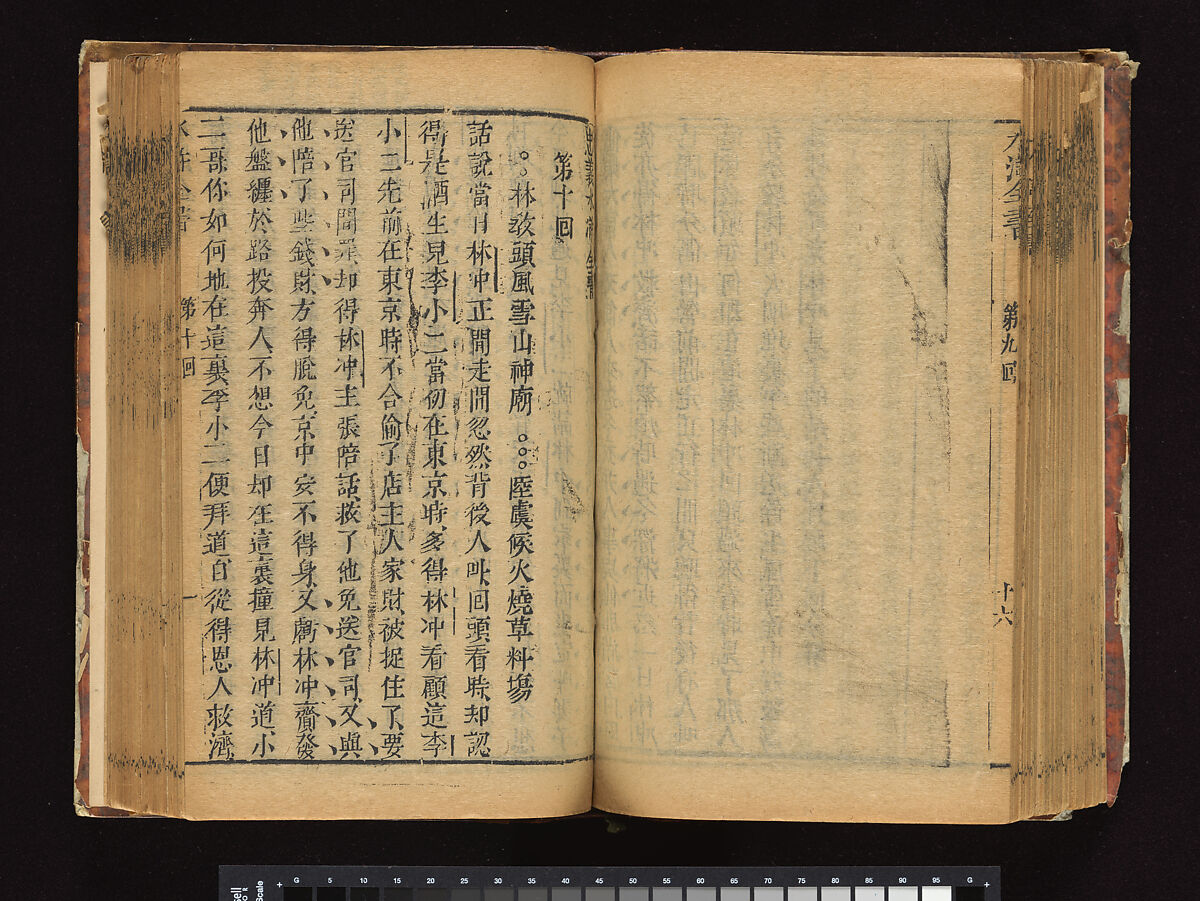 水滸全書 第九回 十六
忠義水滸全書
第十回
○○林敎頭風雪山神廟 ○○○陸虞候火燒草料塲
話說當日林冲正閒走間忽然背後人叫回頭看時却認
得是酒生兒李小二當初在東京時多得林冲看顧這李
小二先前在東京時不合偷了店主人家財被捉住了要
送官司問罪却得林冲主張陪話救了他免送官司又與
他陪了些錢財方得脫免京中安不得身又虧林冲齎發
他盤纏於路投奔人不想今日却在這裏撞見林冲道小
二哥你如何地在這裏李小二便拜道自從得恩人救濟
水滸全書 第十回 一
5 10 15 20 25 30 35 40 45 50 55 60 65 70 75 80 85 90 95